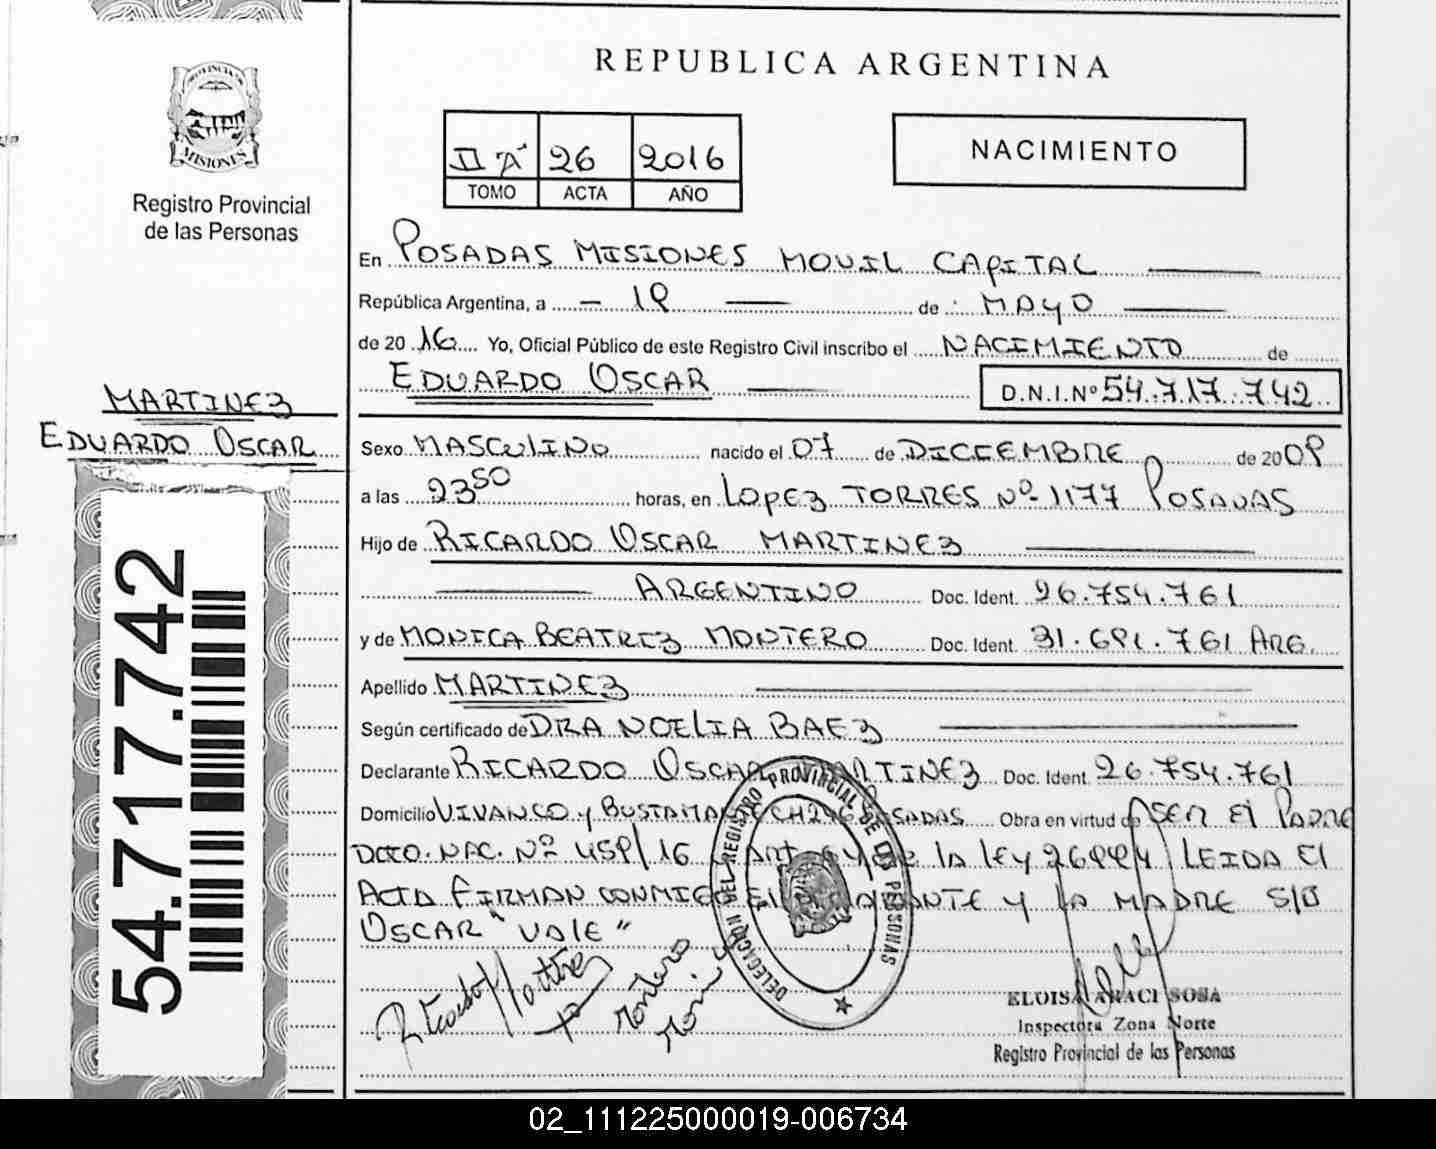 PROVINCIA DE
MISIONES
Registro Provincial
de las Personas
REPUBLICA ARGENTINA
II "A" 26 2016
TOMO ACTA AÑO
NACIMIENTO
En POSADAS MISIONES MOVIL CAPITAL
República Argentina, a 19 de MAYO
de 20 16 Yo, Oficial Público de este Registro Civil inscribo el NACIMIENTO de
EDUARDO OSCAR D.N.I.Nº 54.717.742
MARTINEZ
EDUARDO OSCAR
Sexo MASCULINO nacido el 07 de DICIEMBRE de 2009
a las 23 50 horas, en LOPEZ TORRES Nº 1177 POSADAS
Hijo de RICARDO OSCAR MARTINEZ
ARGENTINO Doc. Ident. 26.754.761
y de MONICA BEATRIZ MONTERO Doc. Ident. 31.691.761 ARG.
Apellido MARTINEZ
Según certificado de DRA NOELIA BAEZ
Declarante RICARDO OSCAR MARTINEZ Doc. Ident. 26.754.761
Domicilio VIVANCO y BUSTAMANTE CH246 POSADAS Obra en virtud de SER El PADRE
DCTO. NAC. Nº 459/16 y ART de la ley 26994 LEIDA El
ACTA FIRMAN CONMIGO El DECLARANTE Y LA MADRE S/B
OSCAR "VALE"
54.717.742
DELEGACION DEL REGISTRO PROVINCIAL DE LAS PERSONAS
Ricardo Martinez
Montero
Monica
ELOISA ARACI SOSA
Inspectora Zona Norte
Registro Provincial de las Personas
02_111225000019-006734